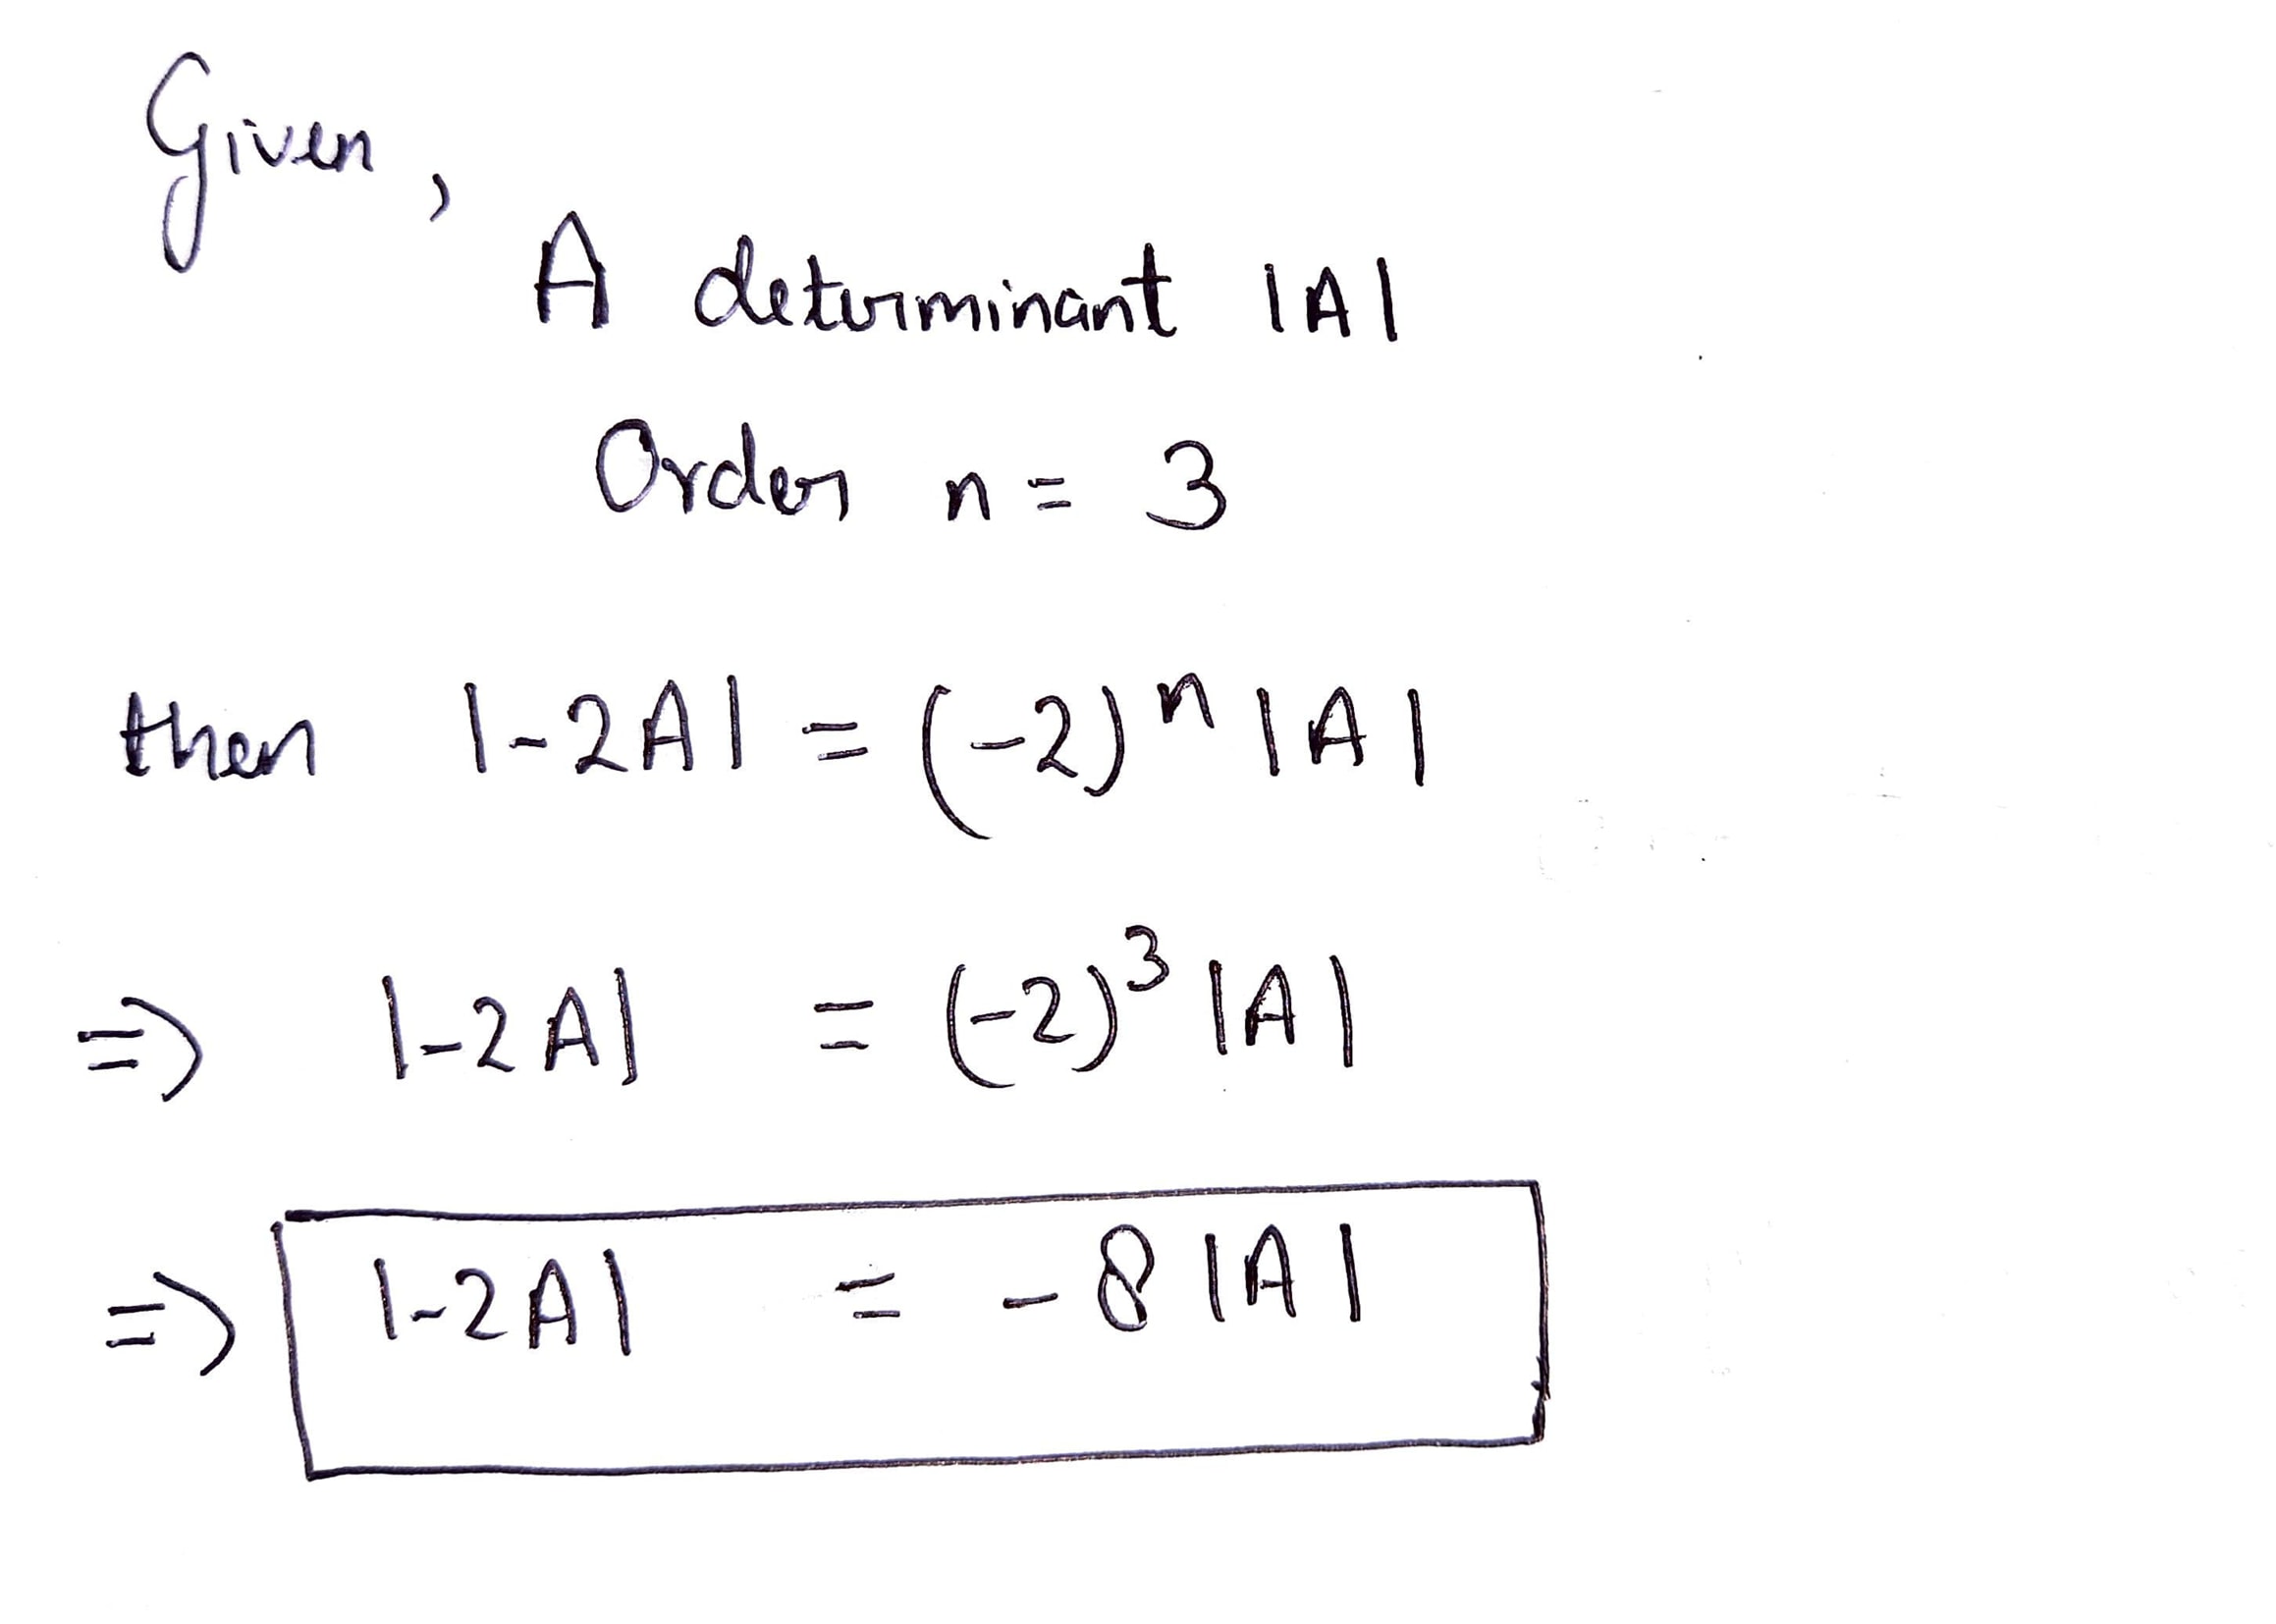 Given,
A determinant |A|
Order n = 3
then |-2A| = (-2)ⁿ |A|
=> |-2A| = (-2)³ |A|
=> |-2A| = -8 |A|